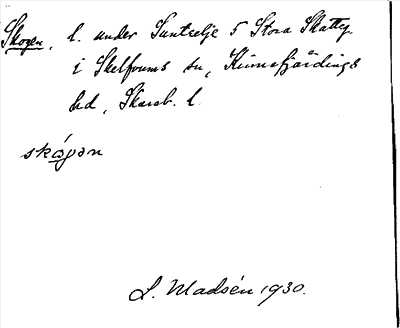 Skogen, l. under Suntelje 5 Stora Skattg.
i Skelfvums sn, Kinnefjärdings
hd, Skarab. l.
skógan
L. Madsén 1930.